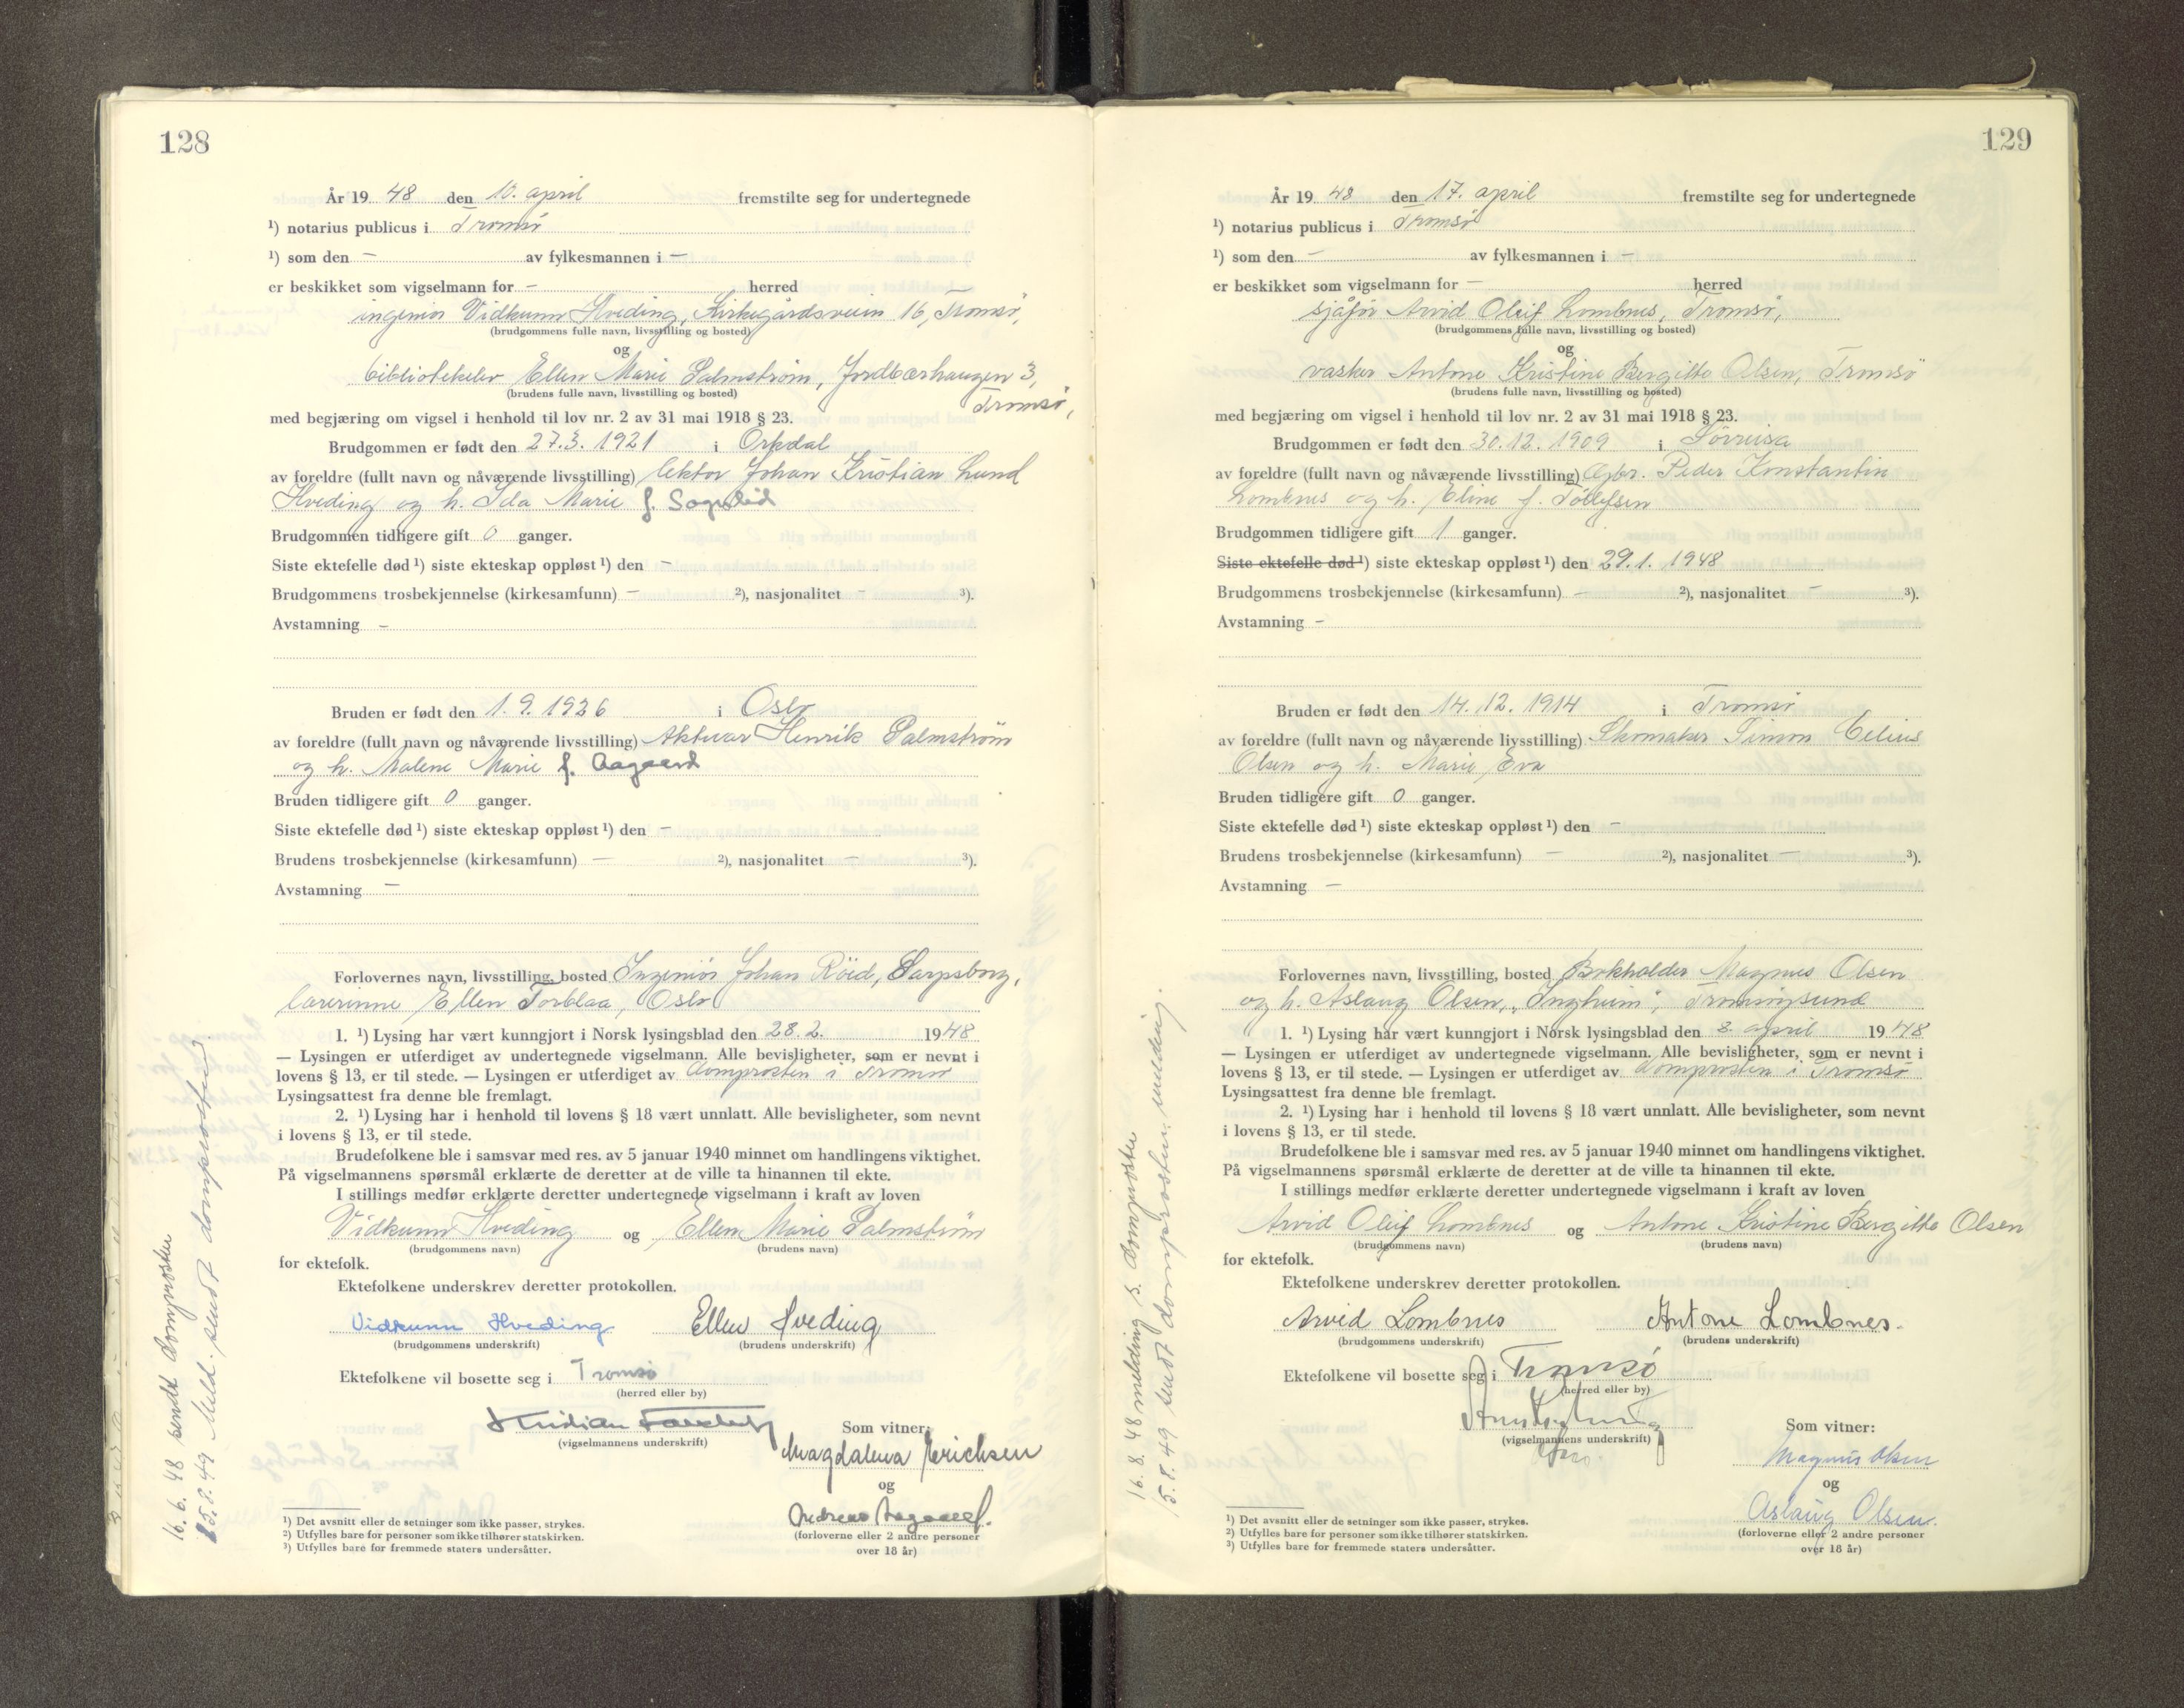 128
År 19 48 den 10. april fremstilte seg for undertegnede
¹) notarius publicus i Tromsø
¹) som den – av fylkesmannen i –
er beskikket som vigselmann for – herred
ingeniør Vidkunn Hveding, Kirkegårdsveien 16, Tromsø,
(brudgommens fulle navn, livsstilling og bosted)
og
bibliotekelev Ellen Marie Palmstrøm, Jordbærhaugen 3,
(brudens fulle navn, livsstilling og bosted)
Tromsø,
med begjæring om vigsel i henhold til lov nr. 2 av 31 mai 1918 § 23.
Brudgommen er født den 27.3. 1921 i Orkdal
av foreldre (fullt navn og nåværende livsstilling) lektor Johan Kristian Lund
Hveding og h. Ida Marie f. Songslid
Brudgommen tidligere gift 0 ganger.
Siste ektefelle død ¹) siste ekteskap oppløst ¹) den –
Brudgommens trosbekjennelse (kirkesamfunn) – ²), nasjonalitet – ³).
Avstamning –
Bruden er født den 1. 9. 1926 i Oslo
av foreldre (fullt navn og nåværende livsstilling) Aktuar Henrik Palmstrøm
og h. Malene Marie f. Aagaard
Bruden tidligere gift 0 ganger.
Siste ektefelle død ¹) siste ekteskap oppløst ¹) den –
Brudens trosbekjennelse (kirkesamfunn) – ²), nasjonalitet – ³).
Avstamning –
Forlovernes navn, livsstilling, bosted Ingeniør Johan Röed, Sarpsborg,
lærerinne Ellen Torblaa, Oslo
1. ¹) Lysing har vært kunngjort i Norsk lysingsblad den 28. 2. 19 48
— Lysingen er utferdiget av undertegnede vigselmann. Alle bevisligheter, som er nevnt i
lovens § 13, er til stede. — Lysingen er utferdiget av domprosten i Tromsø
Lysingsattest fra denne ble fremlagt.
2. ¹) Lysing har i henhold til lovens § 18 vært unnlatt. Alle bevisligheter, som nevnt
i lovens § 13, er til stede.
Brudefolkene ble i samsvar med res. av 5 januar 1940 minnet om handlingens viktighet.
På vigselmannens spørsmål erklærte de deretter at de ville ta hinannen til ekte.
I stillings medfør erklærte deretter undertegnede vigselmann i kraft av loven
Vidkunn Hveding og Ellen Marie Palmstrøm
(brudgommens navn) (brudens navn)
for ektefolk.
Ektefolkene underskrev deretter protokollen.
Vidkunn Hveding Ellen Hveding
(brudgommens underskrift) (brudens underskrift)
Ektefolkene vil bosette seg i Tromsø
(herred eller by)
Kristian
(vigselmannens underskrift)
Som vitner:
Magdalena Erichsen
og
Andreas Aagaard
(forloverne eller 2 andre personer
over 18 år)
¹) Det avsnitt eller de setninger som ikke passer, strykes.
²) Utfylles bare for personer som ikke tilhører statskirken.
³) Utfylles bare for fremmede staters undersåtter.
16. 6. 48 sendt domprosten
5. 8. 49 Meld. sendt domprosten
129
År 19 48 den 17. april fremstilte seg for undertegnede
¹) notarius publicus i Tromsø
¹) som den – av fylkesmannen i –
er beskikket som vigselmann for – herred
sjåfør Arvid Oleif Lombnes, Tromsø,
(brudgommens fulle navn, livsstilling og bosted)
og
vasker Antone Kristine Bergitte Olsen, Tromsø
(brudens fulle navn, livsstilling og bosted)
med begjæring om vigsel i henhold til lov nr. 2 av 31 mai 1918 § 23.
Brudgommen er født den 30. 12. 1909 i Sövreisa
av foreldre (fullt navn og nåværende livsstilling) Gbr. Peder Konstantin
Lombnes og h. Eline f. Tollefsen
Brudgommen tidligere gift 1 ganger.
Siste ektefelle død ¹) siste ekteskap oppløst ¹) den 29. 1. 1948
Brudgommens trosbekjennelse (kirkesamfunn) – ²), nasjonalitet – ³).
Avstamning –
Bruden er født den 14. 12. 1914 i Tromsø
av foreldre (fullt navn og nåværende livsstilling) Skomaker Simon Celius
Olsen og h. Marie Eva
Bruden tidligere gift 0 ganger.
Siste ektefelle død ¹) siste ekteskap oppløst ¹) den –
Brudens trosbekjennelse (kirkesamfunn) – ²), nasjonalitet – ³).
Avstamning –
Forlovernes navn, livsstilling, bosted Bokholder Magnus Olsen
og h. Aslaug Olsen, „Ingheim", Tromsøysund
1. ¹) Lysing har vært kunngjort i Norsk lysingsblad den 3. april 19 48
— Lysingen er utferdiget av undertegnede vigselmann. Alle bevisligheter, som er nevnt i
lovens § 13, er til stede. — Lysingen er utferdiget av domprosten i Tromsø
Lysingsattest fra denne ble fremlagt.
2. ¹) Lysing har i henhold til lovens § 18 vært unnlatt. Alle bevisligheter, som nevnt
i lovens § 13, er til stede.
Brudefolkene ble i samsvar med res. av 5 januar 1940 minnet om handlingens viktighet.
På vigselmannens spørsmål erklærte de deretter at de ville ta hinannen til ekte.
I stillings medfør erklærte deretter undertegnede vigselmann i kraft av loven
Arvid Oleif Lombnes og Antone Kristine Bergitte Olsen
(brudgommens navn) (brudens navn)
for ektefolk.
Ektefolkene underskrev deretter protokollen.
Arvid Lombnes Antone Lombnes.
(brudgommens underskrift) (brudens underskrift)
Ektefolkene vil bosette seg i Tromsø
(herred eller by)
(vigselmannens underskrift)
Som vitner:
Magnus Olsen
og
Aslaug Olsen.
(forloverne eller 2 andre personer
over 18 år)
¹) Det avsnitt eller de setninger som ikke passer, strykes.
²) Utfylles bare for personer som ikke tilhører statskirken.
³) Utfylles bare for fremmede staters undersåtter.
16. 8. 48 melding s. domprosten
5. 8. 49 sendt domprosten melding.